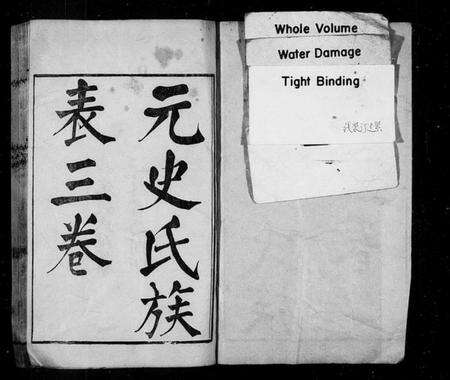 Whole Volume
Water Damage
Tight Binding
元史氏族
表三卷